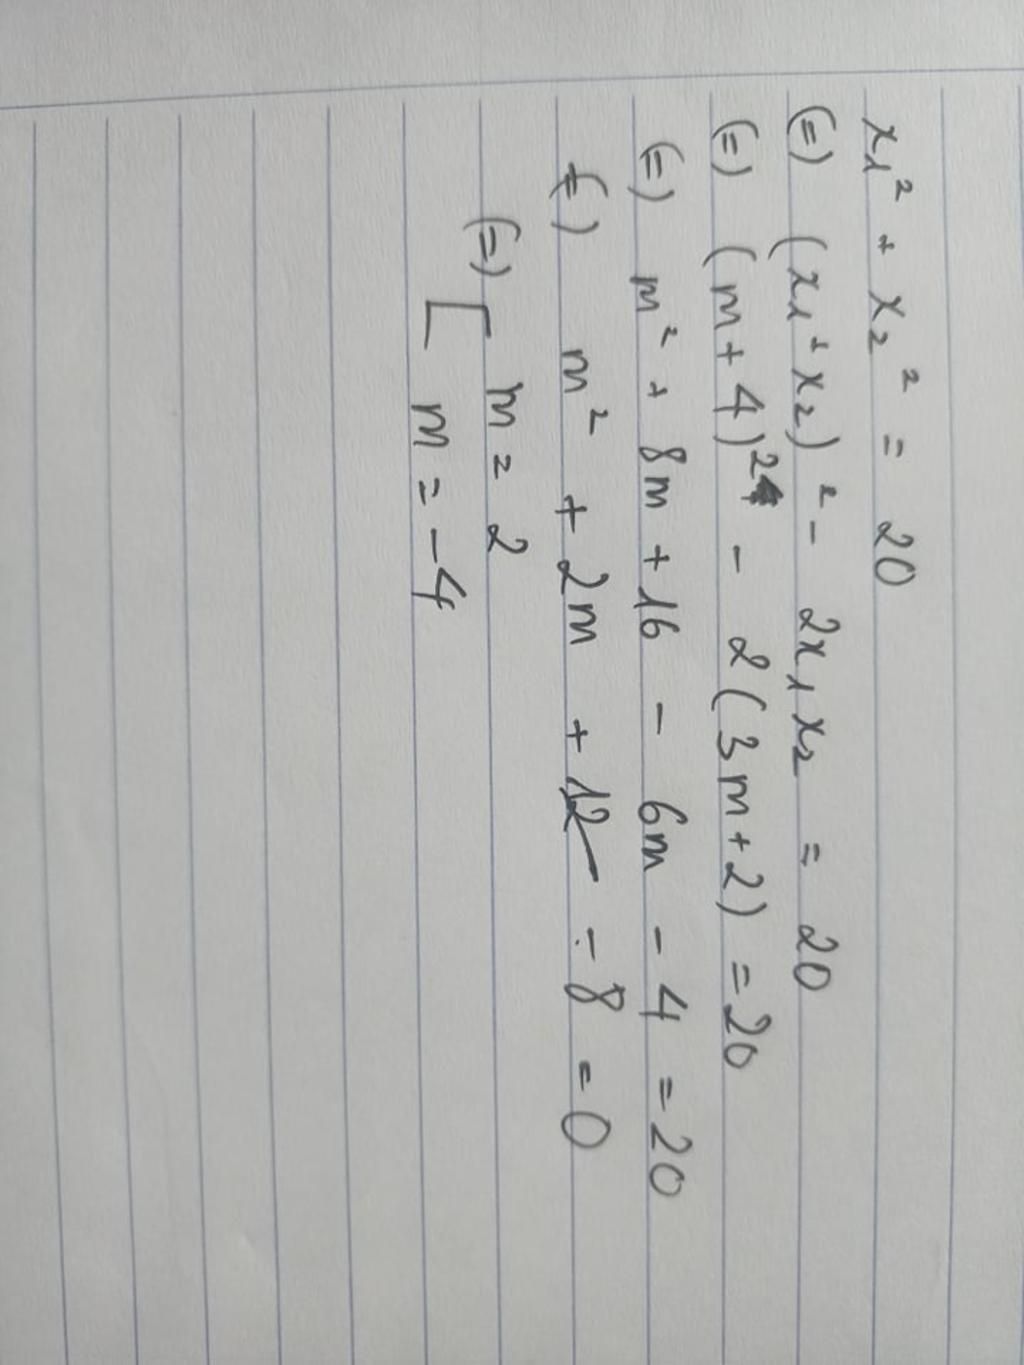 x₁² + x₂² = 20
(=) (x₁ + x₂)² - 2x₁x₂ = 20
(=) (m + 4)² - 2(3m + 2) = 20
(=) m² + 8m + 16 - 6m - 4 = 20
(=) m² + 2m - 8 = 0
(=) [ m = 2
m = -4